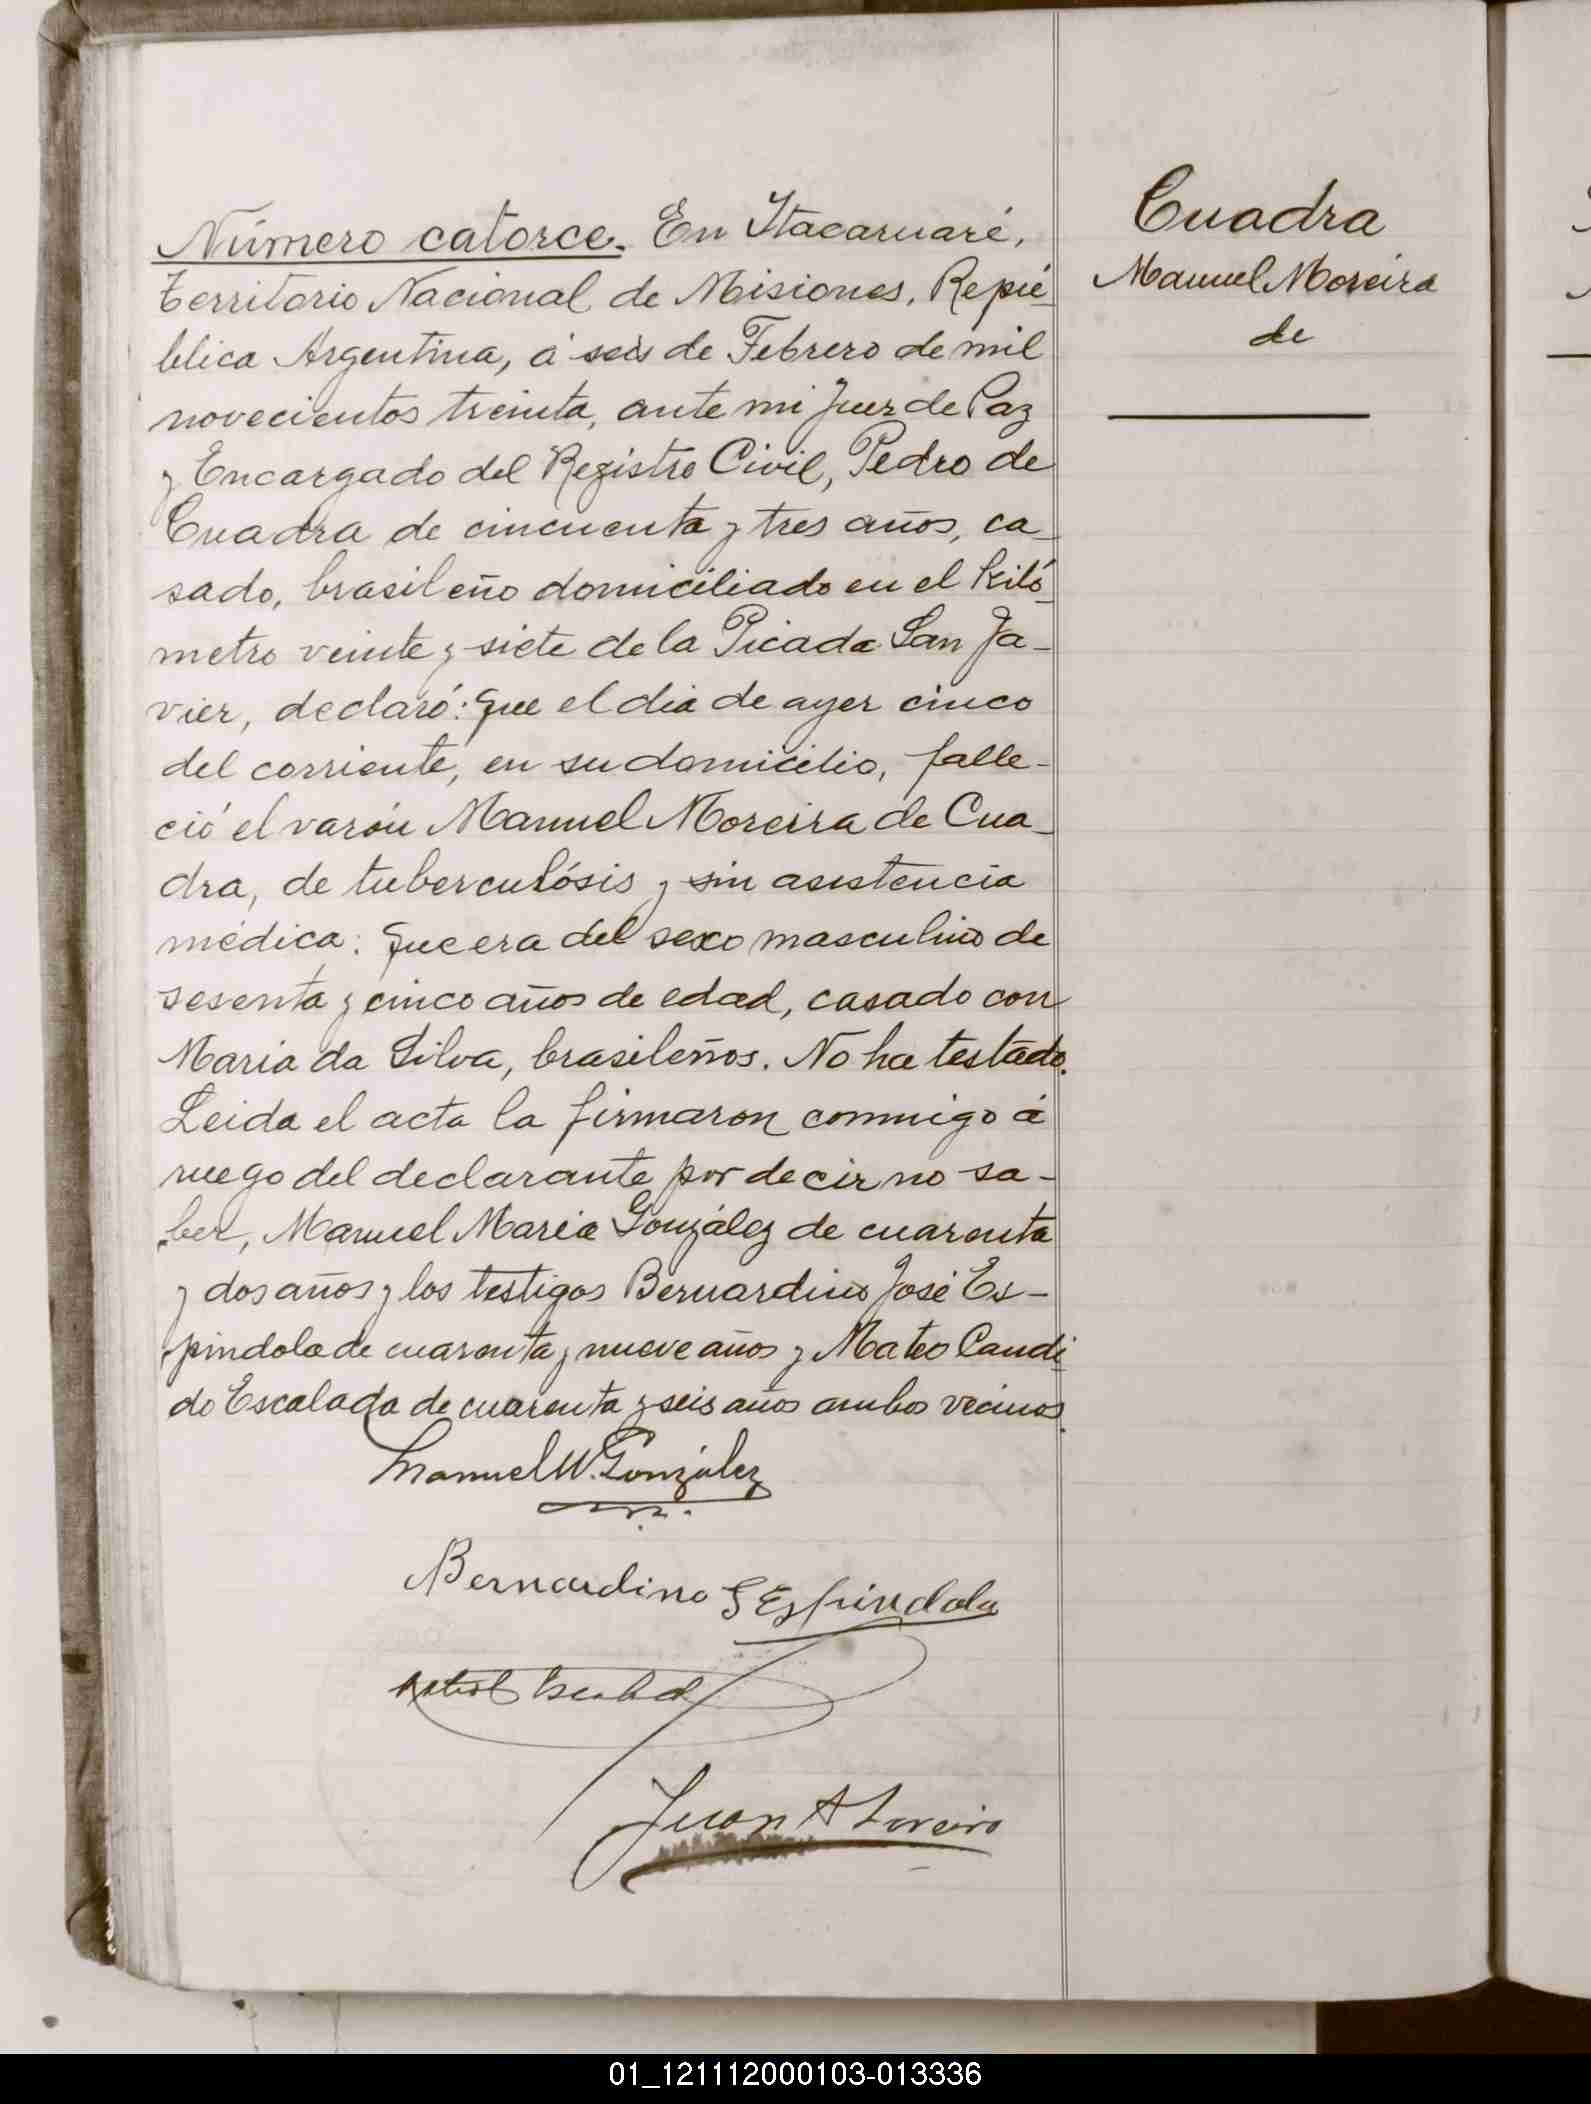 Número catorce. En Itacaruaré,
territorio Nacional de Misiones, Repú-
blica Argentina, á seis de Febrero de mil
novecientos treinta, ante mi Juez de Paz
y Encargado del Registro Civil, Pedro de
Cuadra de cincuenta y tres años, ca-
sado, brasileño domiciliado en el kiló-
metro veinte y siete de la Picada San Ja-
vier, declaró: Que el dia de ayer cinco
del corriente, en su domicilio, falle-
ció el varón Manuel Moreira de Cua-
dra, de tuberculósis y sin asistencia
médica: Que era del sexo masculino de
sesenta y cinco años de edad, casado con
Maria da Silva, brasileños. No ha testado.
Leida el acta la firmaron conmigo á
ruego del declarante por decir no sa-
ber, Manuel Maria González de cuarenta
y dos años y los testigos Bernardino José Es-
pindola de cuarenta y nueve años y Mateo Candi-
do Escalada de cuarenta y seis años ambos vecinos.
Manuel M. González
Bernardino J Espindola
Juan A
Cuadra
Manuel Moreira
de
01_121112000103-013336